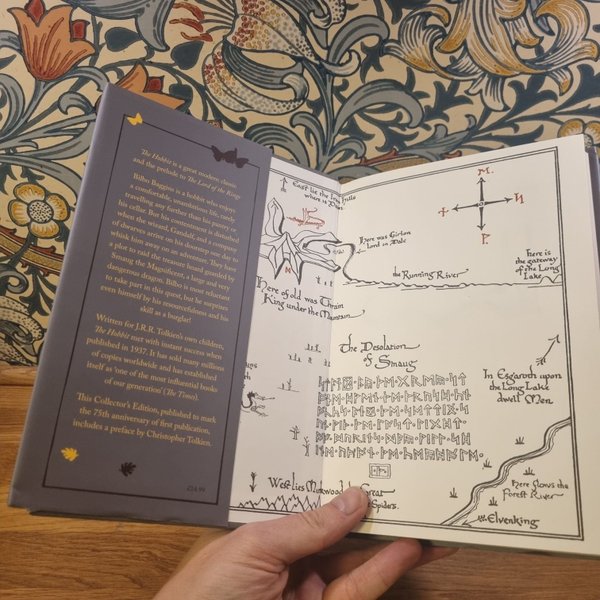 The Hobbit is a great modern classic
and the prelude to The Lord of the Rings
Bilbo Baggins is a hobbit who enjoys
a comfortable, unambitious life, rarely
travelling any further than his pantry or
his cellar. But his contentment is disturbed
when the wizard, Gandalf, and a company
of dwarves arrive on his doorstep one day to
whisk him away on an adventure. They have
a plot to raid the treasure hoard guarded by
Smaug the Magnificent, a large and very
dangerous dragon. Bilbo is most reluctant
to take part in this quest, but he surprises
even himself by his resourcefulness and his
skill as a burglar!
Written for J.R.R. Tolkien's own children,
The Hobbit met with instant success when
published in 1937. It has sold many millions
of copies worldwide and has established
itself as 'one of the most influential books
of our generation' (The Times).
This Collector's Edition, published to mark
the 75th anniversary of first publication,
includes a preface by Christopher Tolkien.
£14.99
East lie the Iron Hills
where is Dain.
Here was Girion
Lord in Dale
the Running River
here is
the gateway
of the Long
Lake
Here of old was Thrain
King under the Mountain
The Desolation
of Smaug
In Esgaroth upon
the Long Lake
dwell Men
here flows the
Forest River
West lies Mirkwood the Great
Spiders.
Elvenking